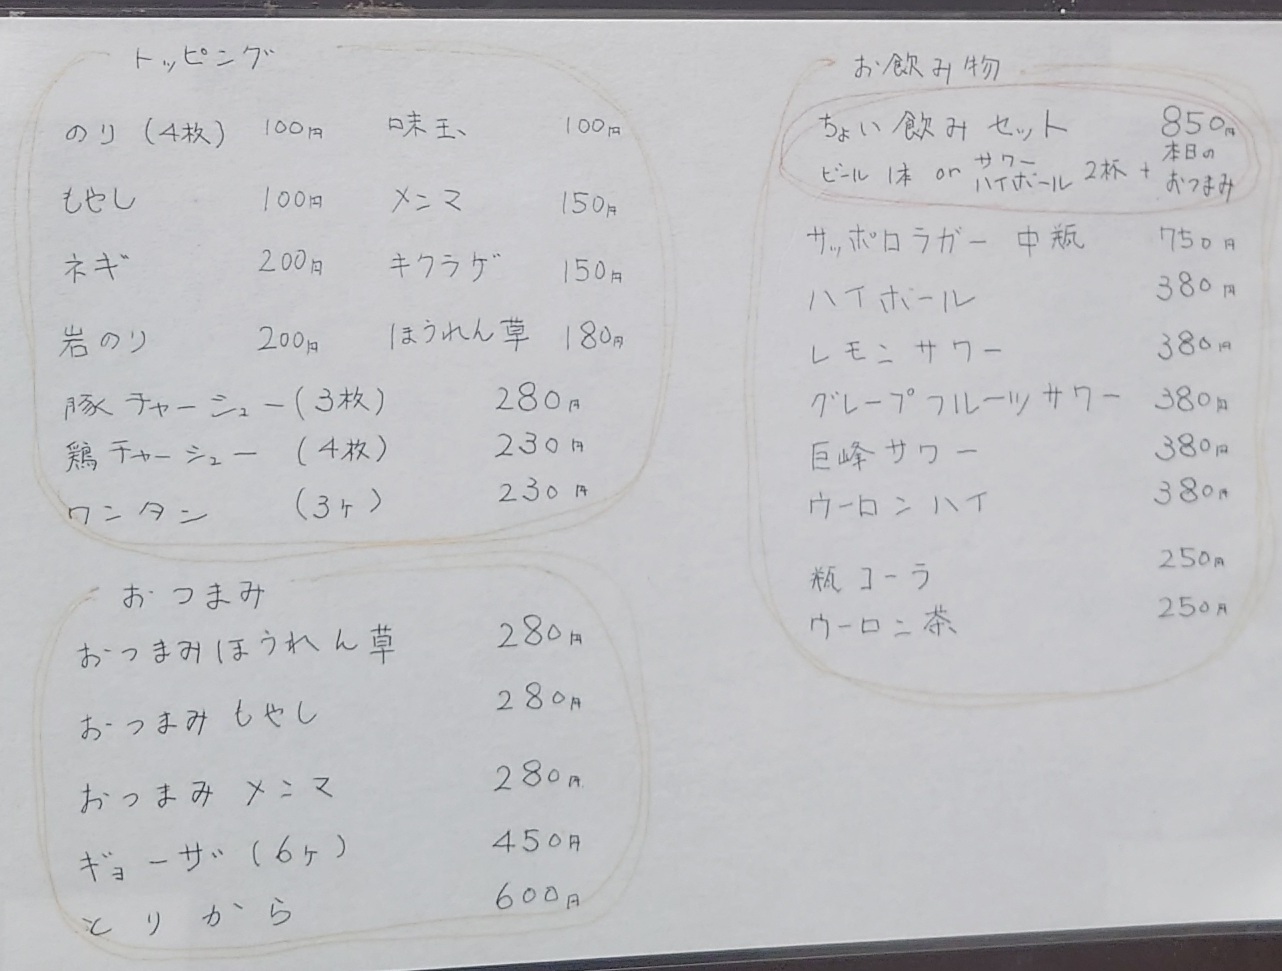 トッピング
のり(4枚) 100円 味玉 100円
もやし 100円 メンマ 150円
ネギ 200円 キクラゲ 150円
岩のり 200円 ほうれん草 180円
豚チャーシュー(3枚) 280円
鶏チャーシュー(4枚) 230円
ワンタン(3ヶ) 230円
おつまみ
おつまみほうれん草 280円
おつまみもやし 280円
おつまみメンマ 280円
ギョーザ(6ヶ) 450円
とりから 600円
お飲み物
ちょい飲みセット 850円
ビール1本 or サワー ハイボール 2杯 + 本日の おつまみ
サッポロラガー 中瓶 750円
ハイボール 380円
レモンサワー 380円
グレープフルーツサワー 380円
巨峰サワー 380円
ウーロンハイ 380円
瓶コーラ 250円
ウーロン茶 250円